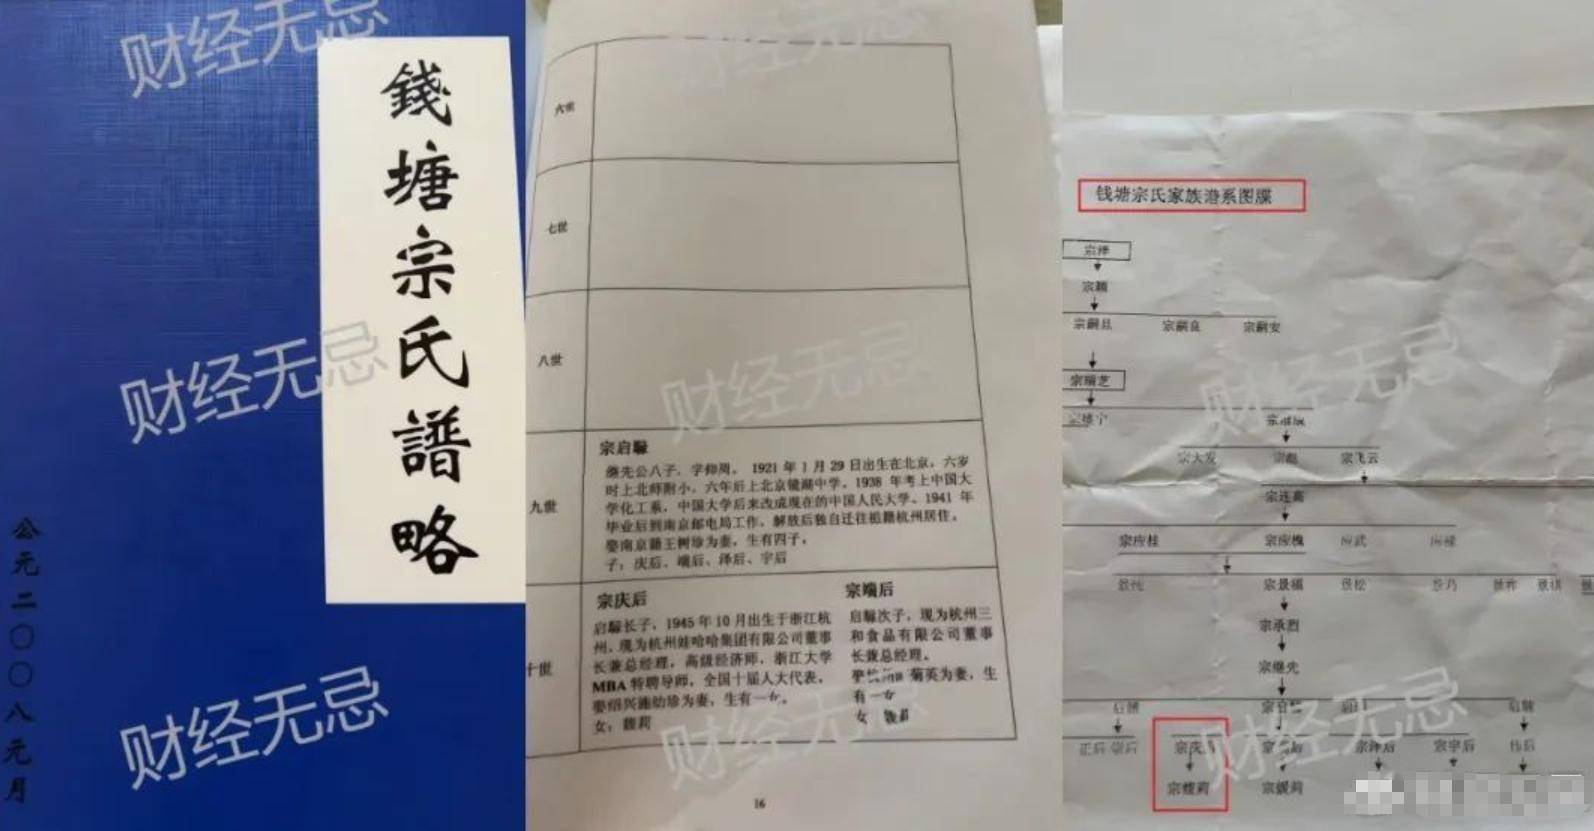 錢塘宗氏譜略
公元二〇〇八元月
财经无忌
财经无忌
财经无忌
六世
七世
八世
九世
宗启騄
继先公八子，字仰周。1921年1月29日出生在北京，六岁
时上北师附小，六年后上北京镜湖中学。1938年考上中国大
学化工系，中国大学后来改成现在的中国人民大学。1941年
毕业后到南京邮电局工作，解放后独自迁往祖籍杭州居住。
娶南京籍王树珍为妻，生有四子。
子：庆后、端后、泽后、宇后
十世
宗庆后
启騄长子，1945年10月出生于浙江杭
州，现为杭州娃哈哈集团有限公司董事
长兼总经理，高级经济师，浙江大学
MBA特聘导师，全国十届人大代表。
娶绍兴施幼珍为妻，生有一女。
女：馥莉
宗端后
启騄次子，现为杭州三
和食品有限公司董事
长兼总经理。
菊英为妻，生
有一女
女
16
财经无忌
财经无忌
财经无忌
钱塘宗氏家族谱系图牒
宗泽
宗颖
宗嗣旦 宗嗣良 宗嗣安
宗瑞芝
宗维宁
宗大发 宗彪 宗飞云
宗连高
宗应桂 宗应槐 应武 应禄
景纯 宗景福 景松 景乃 景祚 景祺
宗承烈
宗继先
正后 崇后 宗庆后 宗端后 宗泽后 宗宇后 伟后
宗馥莉 宗媛莉
财经无忌
财经无忌